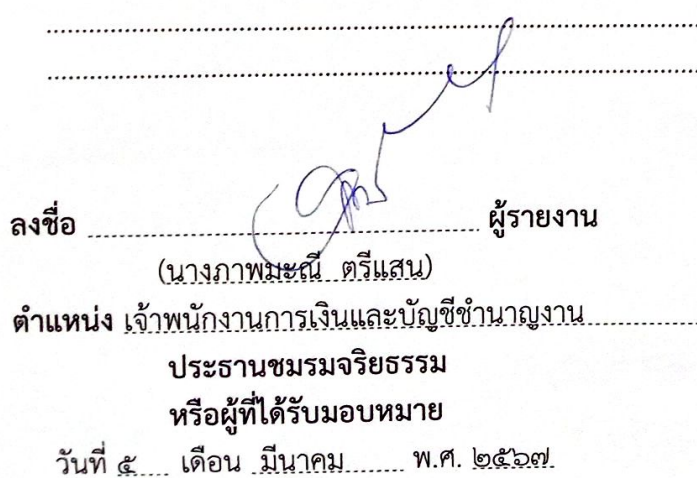 ลงชื่อ ผู้รายงาน
(นางภาพมะณี ตรีแสน)
ตำแหน่ง เจ้าพนักงานการเงินและบัญชีชำนาญงาน
ประธานชมรมจริยธรรม
หรือผู้ที่ได้รับมอบหมาย
วันที่ ๕ เดือน มีนาคม พ.ศ. ๒๕๖๗